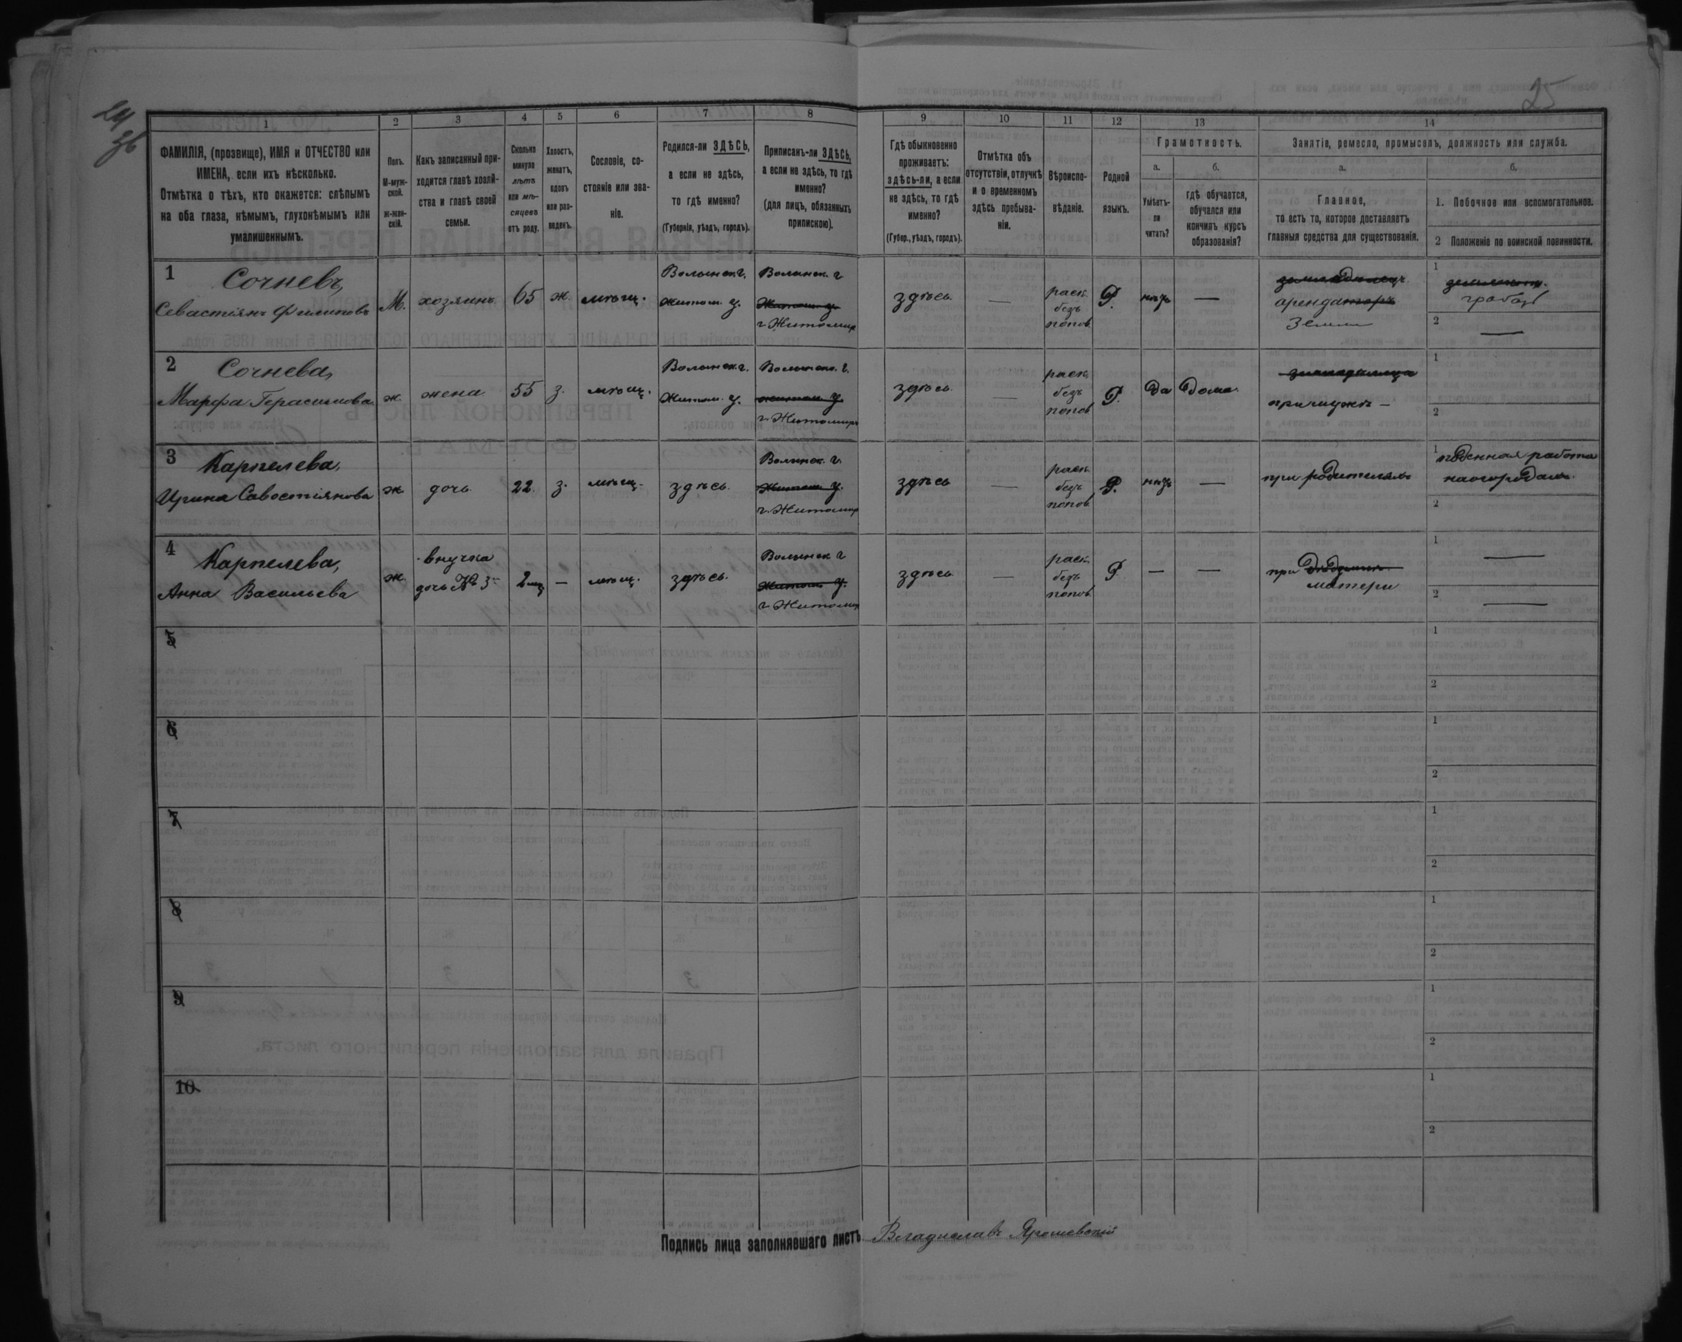 24
36
25
1
2
3
4
5
6
7
8
9
10
11
12
13
14
ФАМИЛІЯ, (прозвище), ИМЯ и ОТЧЕСТВО или
ИМЕНА, если ихъ нѣсколько.
Отмѣтка о тѣхъ, кто окажется: слѣпымъ
на оба глаза, нѣмымъ, глухонѣмымъ или
умалишеннымъ.
Полъ.
М-муж-
ской.
ж-жен-
скій.
Какъ записанный при-
ходится главѣ хозяй-
ства и главѣ своей
семьи.
Сколько
минуло
лѣтъ
или мѣ-
сяцевъ
отъ роду.
Холостъ,
женатъ,
вдовъ
или раз-
веденъ.
Сословіе, со-
стояніе или зва-
ніе.
Родился-ли ЗДѢСЬ,
а если не здѣсь,
то гдѣ именно?
(Губернія, уѣздъ, городъ).
Приписанъ-ли ЗДѢСЬ,
а если не здѣсь, то гдѣ
именно?
(для лицъ, обязанныхъ
припискою).
Гдѣ обыкновенно
проживаетъ:
здѣсь-ли, а если
не здѣсь, то гдѣ
именно?
(Губер., уѣздъ, городъ).
Отмѣтка объ
отсутствіи, отлучкѣ
и о временномъ
здѣсь пребыва-
ніи.
Вѣроиспо-
вѣданіе.
Родной
языкъ.
Грамотность.
а.
Умѣетъ-
ли
читать?
б.
гдѣ обучается,
обучался или
кончилъ курсъ
образованія?
Занятіе, ремесло, промыселъ, должность или служба.
а.
Главное,
то есть то, которое доставляетъ
главныя средства для существованія.
б.
1. Побочное или вспомогательное.
2 Положеніе по воинской повинности.
1
Сочневъ
Севастіянъ Филиповъ
М.
хозяинъ
65
ж.
мѣщ.
Волынск г.
Житом. у.
Волынск. г
Житом у.
г. Житомир
здѣсь
—
раск.
безъ
попов
Р.
нѣтъ
—
земледелецъ
арендаторъ
земли
1
2
—
2
Сочнева,
Марфа Герасимова
ж.
жена
55
з.
мѣщ.
Волынск г.
Житом. у.
Волынск. г.
Житом у.
г. Житомир
здѣсь
—
раск
безъ
попов
Р.
да
дома
при мужѣ —
1
2
3
Карпелева,
Ирина Савостіянова
ж
дочь
22.
з.
мѣщ.
здѣсь.
Волынск. г.
Житом у.
г. Житомир
здѣсь
раск
безъ
попов
Р.
нѣтъ
—
при родителяхъ
1
поденная работа
на огородахъ.
2
4
Карпелева,
Анна Васильева
ж.
внучка
дочь № 3
2 мц
—
мѣщ.
здѣсь.
Волынск г
Житом у.
г. Житомир
здѣсь
—
раск.
безъ
попов
Р.
—
—
при
матери
1
—
2
—
5
1
2
6
1
2
7
1
2
8
1
2
9
1
2
10
1
2
Подпись лица заполнявшаго листъ Владиславъ Ярошевскій